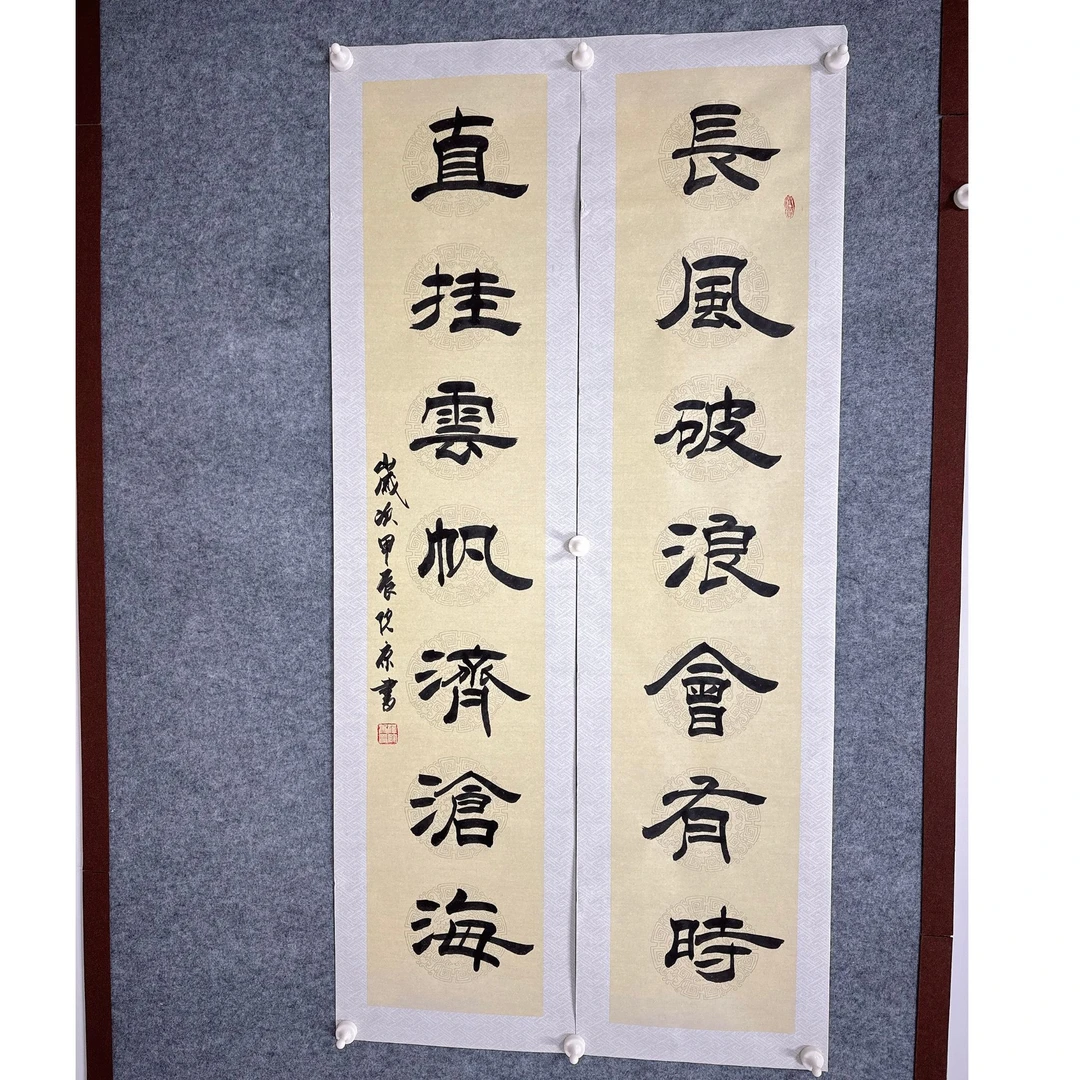 長風破浪會有時
直挂雲帆濟滄海
歲次甲辰
書